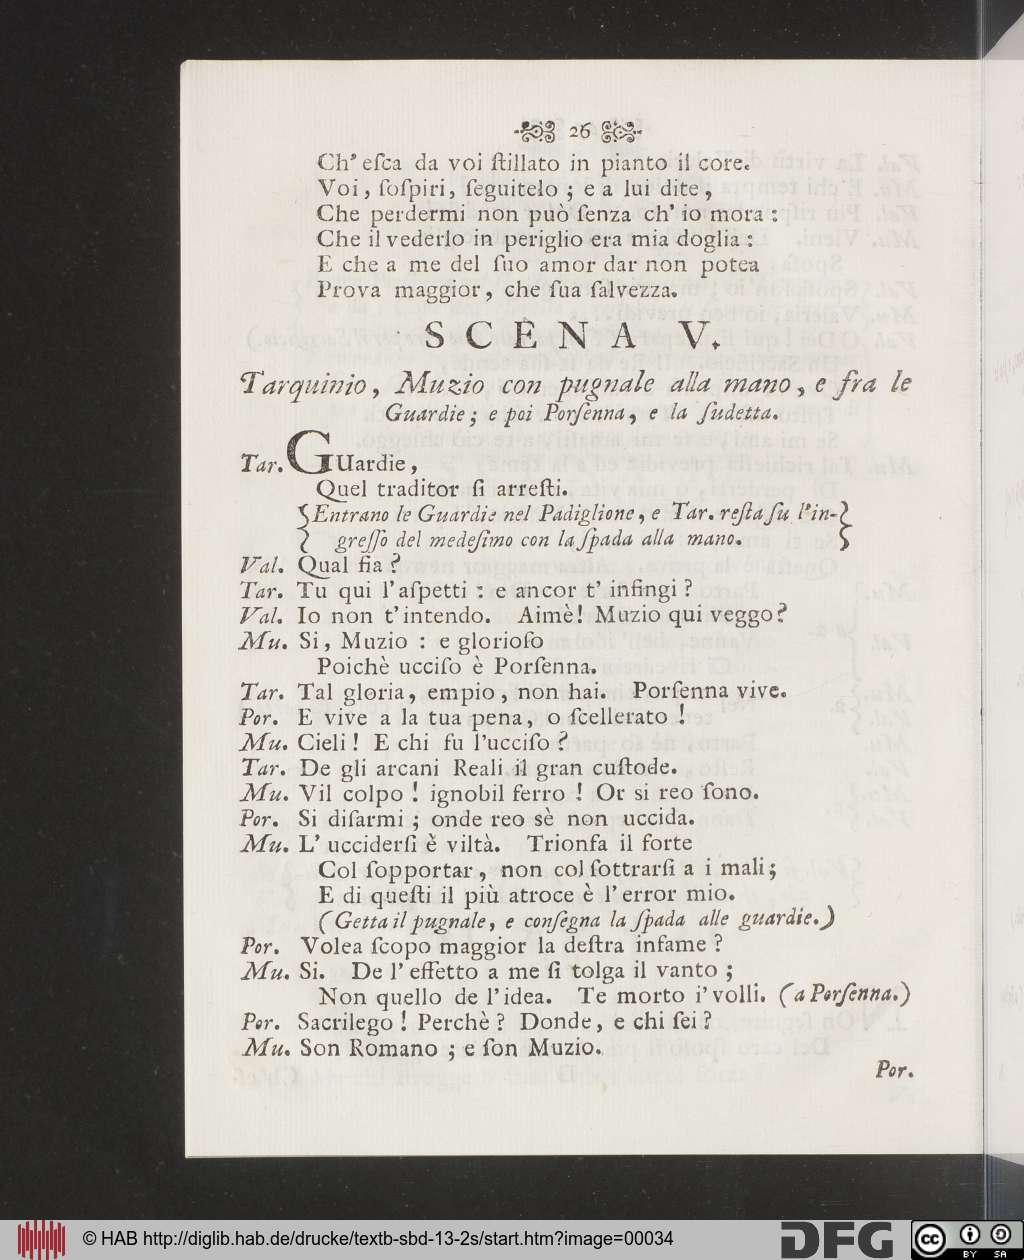 26
Ch' eſca da voi ſtillato in pianto il core.
Voi, ſoſpiri, ſeguitelo; e a lui dite,
Che perdermi non può ſenza ch' io mora:
Che il vederlo in periglio era mia doglia:
E che a me del ſuo amor dar non potea
Prova maggior, che ſua ſalvezza.
SCENA V.
Tarquinio, Muzio con pugnale alla mano, e fra le
Guardie; e poi Porſenna, e la ſudetta.
Tar. GUardie,
Quel traditor ſi arreſti.
{Entrano le Guardie nel Padiglione, e Tar. reſta ſu l'in-}
{greſſo del medeſimo con la ſpada alla mano.}
Val. Qual fia?
Tar. Tu qui l'aſpetti: e ancor t' infingi?
Val. Io non t'intendo. Aimè! Muzio qui veggo?
Mu. Si, Muzio: e glorioſo
Poichè ucciſo è Porſenna.
Tar. Tal gloria, empio, non hai. Porſenna vive.
Por. E vive a la tua pena, o ſcellerato!
Mu. Cieli! E chi fu l'ucciſo?
Tar. De gli arcani Reali il gran cuſtode.
Mu. Vil colpo! ignobil ferro! Or si reo ſono.
Por. Si diſarmi; onde reo sè non uccida.
Mu. L' ucciderſi è viltà. Trionfa il forte
Col ſopportar, non col ſottrarſi a i mali;
E di queſti il più atroce è l' error mio.
(Getta il pugnale, e conſegna la ſpada alle guardie.)
Por. Volea ſcopo maggior la deſtra infame?
Mu. Si. De l' effetto a me ſi tolga il vanto;
Non quello de l'idea. Te morto i' volli. (a Porſenna.)
Por. Sacrilego! Perchè? Donde, e chi ſei?
Mu. Son Romano; e ſon Muzio.
Por.
© HAB http://diglib.hab.de/drucke/textb-sbd-13-2s/start.htm?image=00034
DFG
cc BY SA